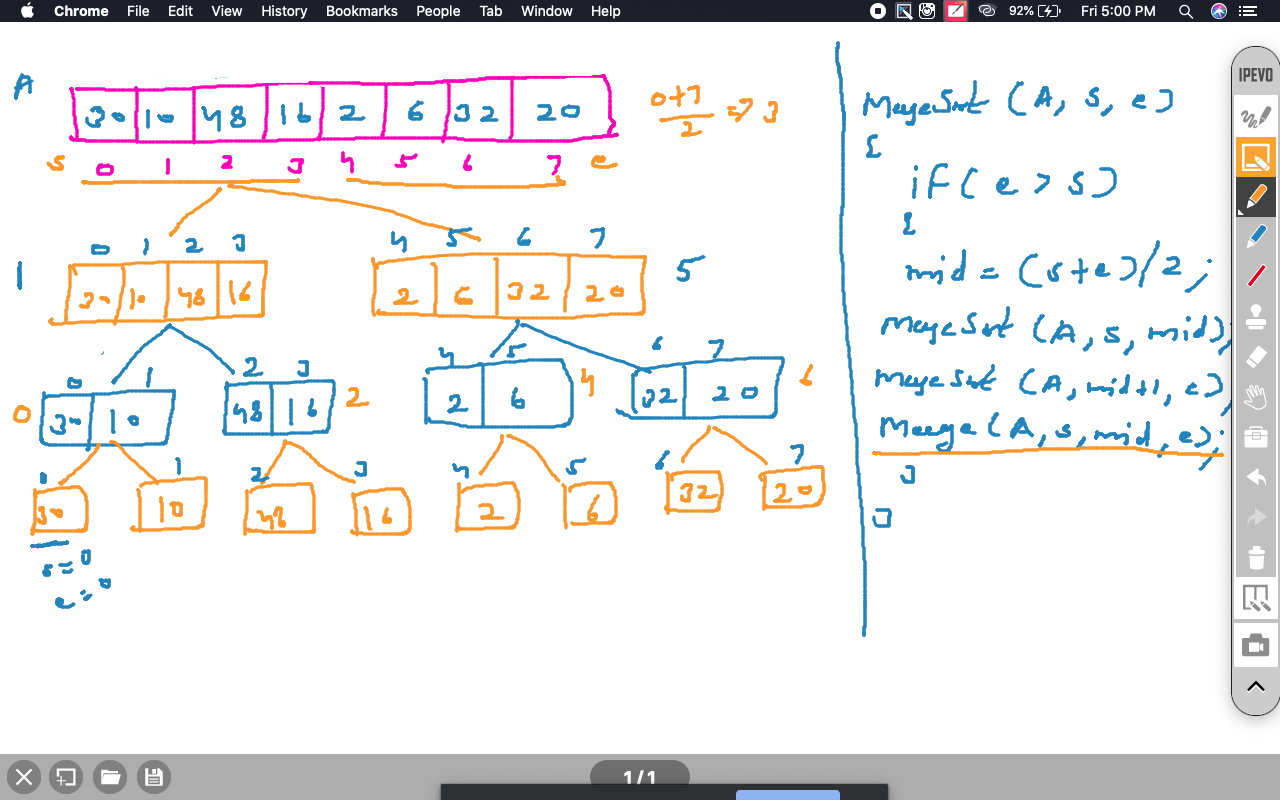 Chrome File Edit View History Bookmarks People Tab Window Help 92% Fri 5:00 PM
IPEVO
A
30 10 48 16 2 6 32 20
s 0 1 2 3 4 5 6 7 e
0+7/2 => 3
0 1 2 3 4 5 6 7
1 30 10 48 16 2 6 32 20 5
0 1 2 3 4 5 6 7
0 30 10 48 16 2 2 6 4 32 20 6
0 1 2 3 4 5 6 7
30 10 48 16 2 6 32 20
s=0
e=0
MergeSort (A, s, e)
{
if( e > s )
{
mid = (s+e)/2 ;
MergeSort (A, s, mid);
MergeSort (A, mid+1, e);
Merge(A, s, mid, e);
}
}
1/1